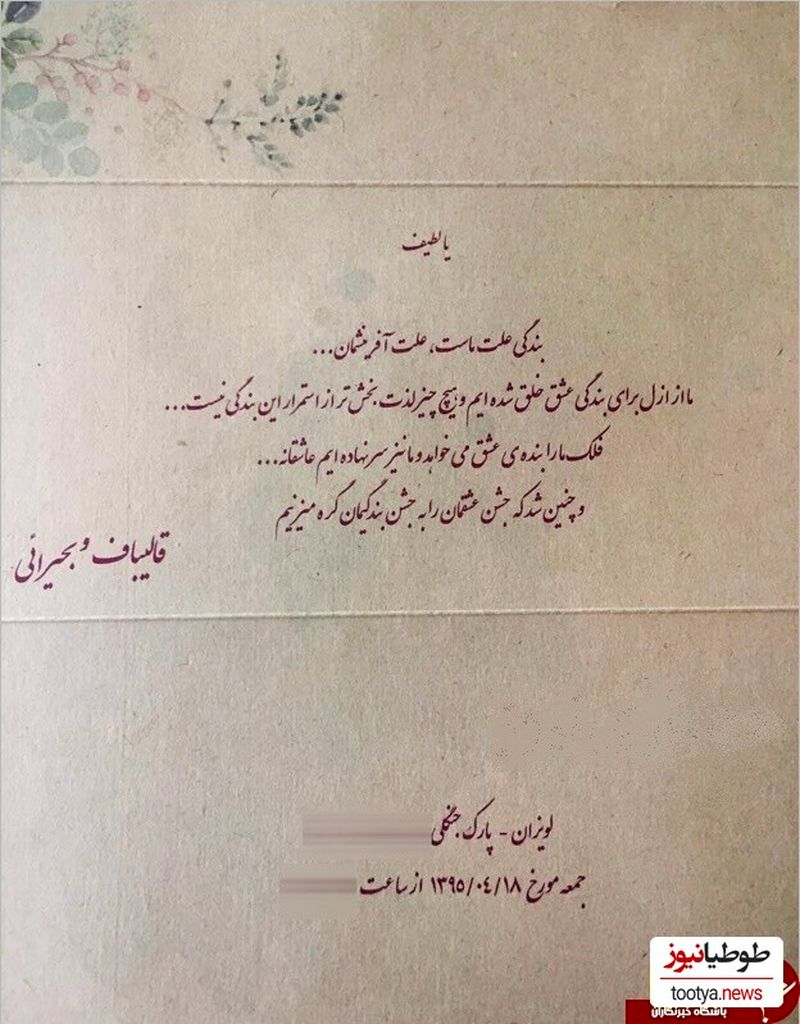 یا لطیف
بندگی علت ماست، علت آفرینشمان...
ما از ازل برای بندگی عشق خلق شده ایم و هیچ چیز لذت بخش تر از استمرار این بندگی نیست...
فلک ما را بنده ی عشق می خواهد و ما نیز سر نهاده ایم عاشقانه...
و چنین شد که جشن عشقمان را به جشن بندگیمان گره میزنیم
قالیباف و بحیرائی
لویزان - پارک جنگلی
جمعه مورخ ۱۳۹۵/۰۴/۱۸ از ساعت
طوطیانیوز
tootya.news
باشگاه خبرنگاران